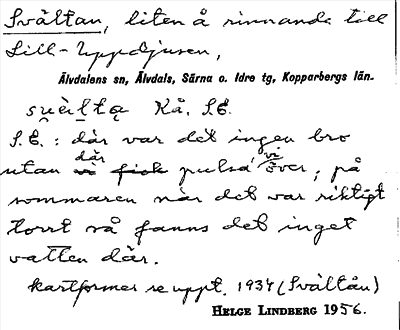 Svältan, liten å rinnande till
Lill-Uppdjusen,
Älvdalens sn, Älvdals, Särna o. Idre tg, Kopparbergs län.
su̯èlta Kå. S.E.
S.E.: där var det ingen bro
utan där fick pulsa vi över, på
sommaren när det var riktigt
torrt så fanns det inget
vatten där.
Kartformer se uppt. 1934 (Svältån)
HELGE LINDBERG 1956.